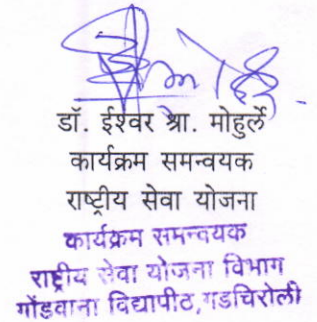 डॉ. ईश्वर श्रा. मोहुर्ले
कार्यक्रम समन्वयक
राष्ट्रीय सेवा योजना
कार्यक्रम समन्वयक
राष्ट्रीय सेवा योजना विभाग
गोंडवाना विद्यापीठ,गडचिरोली